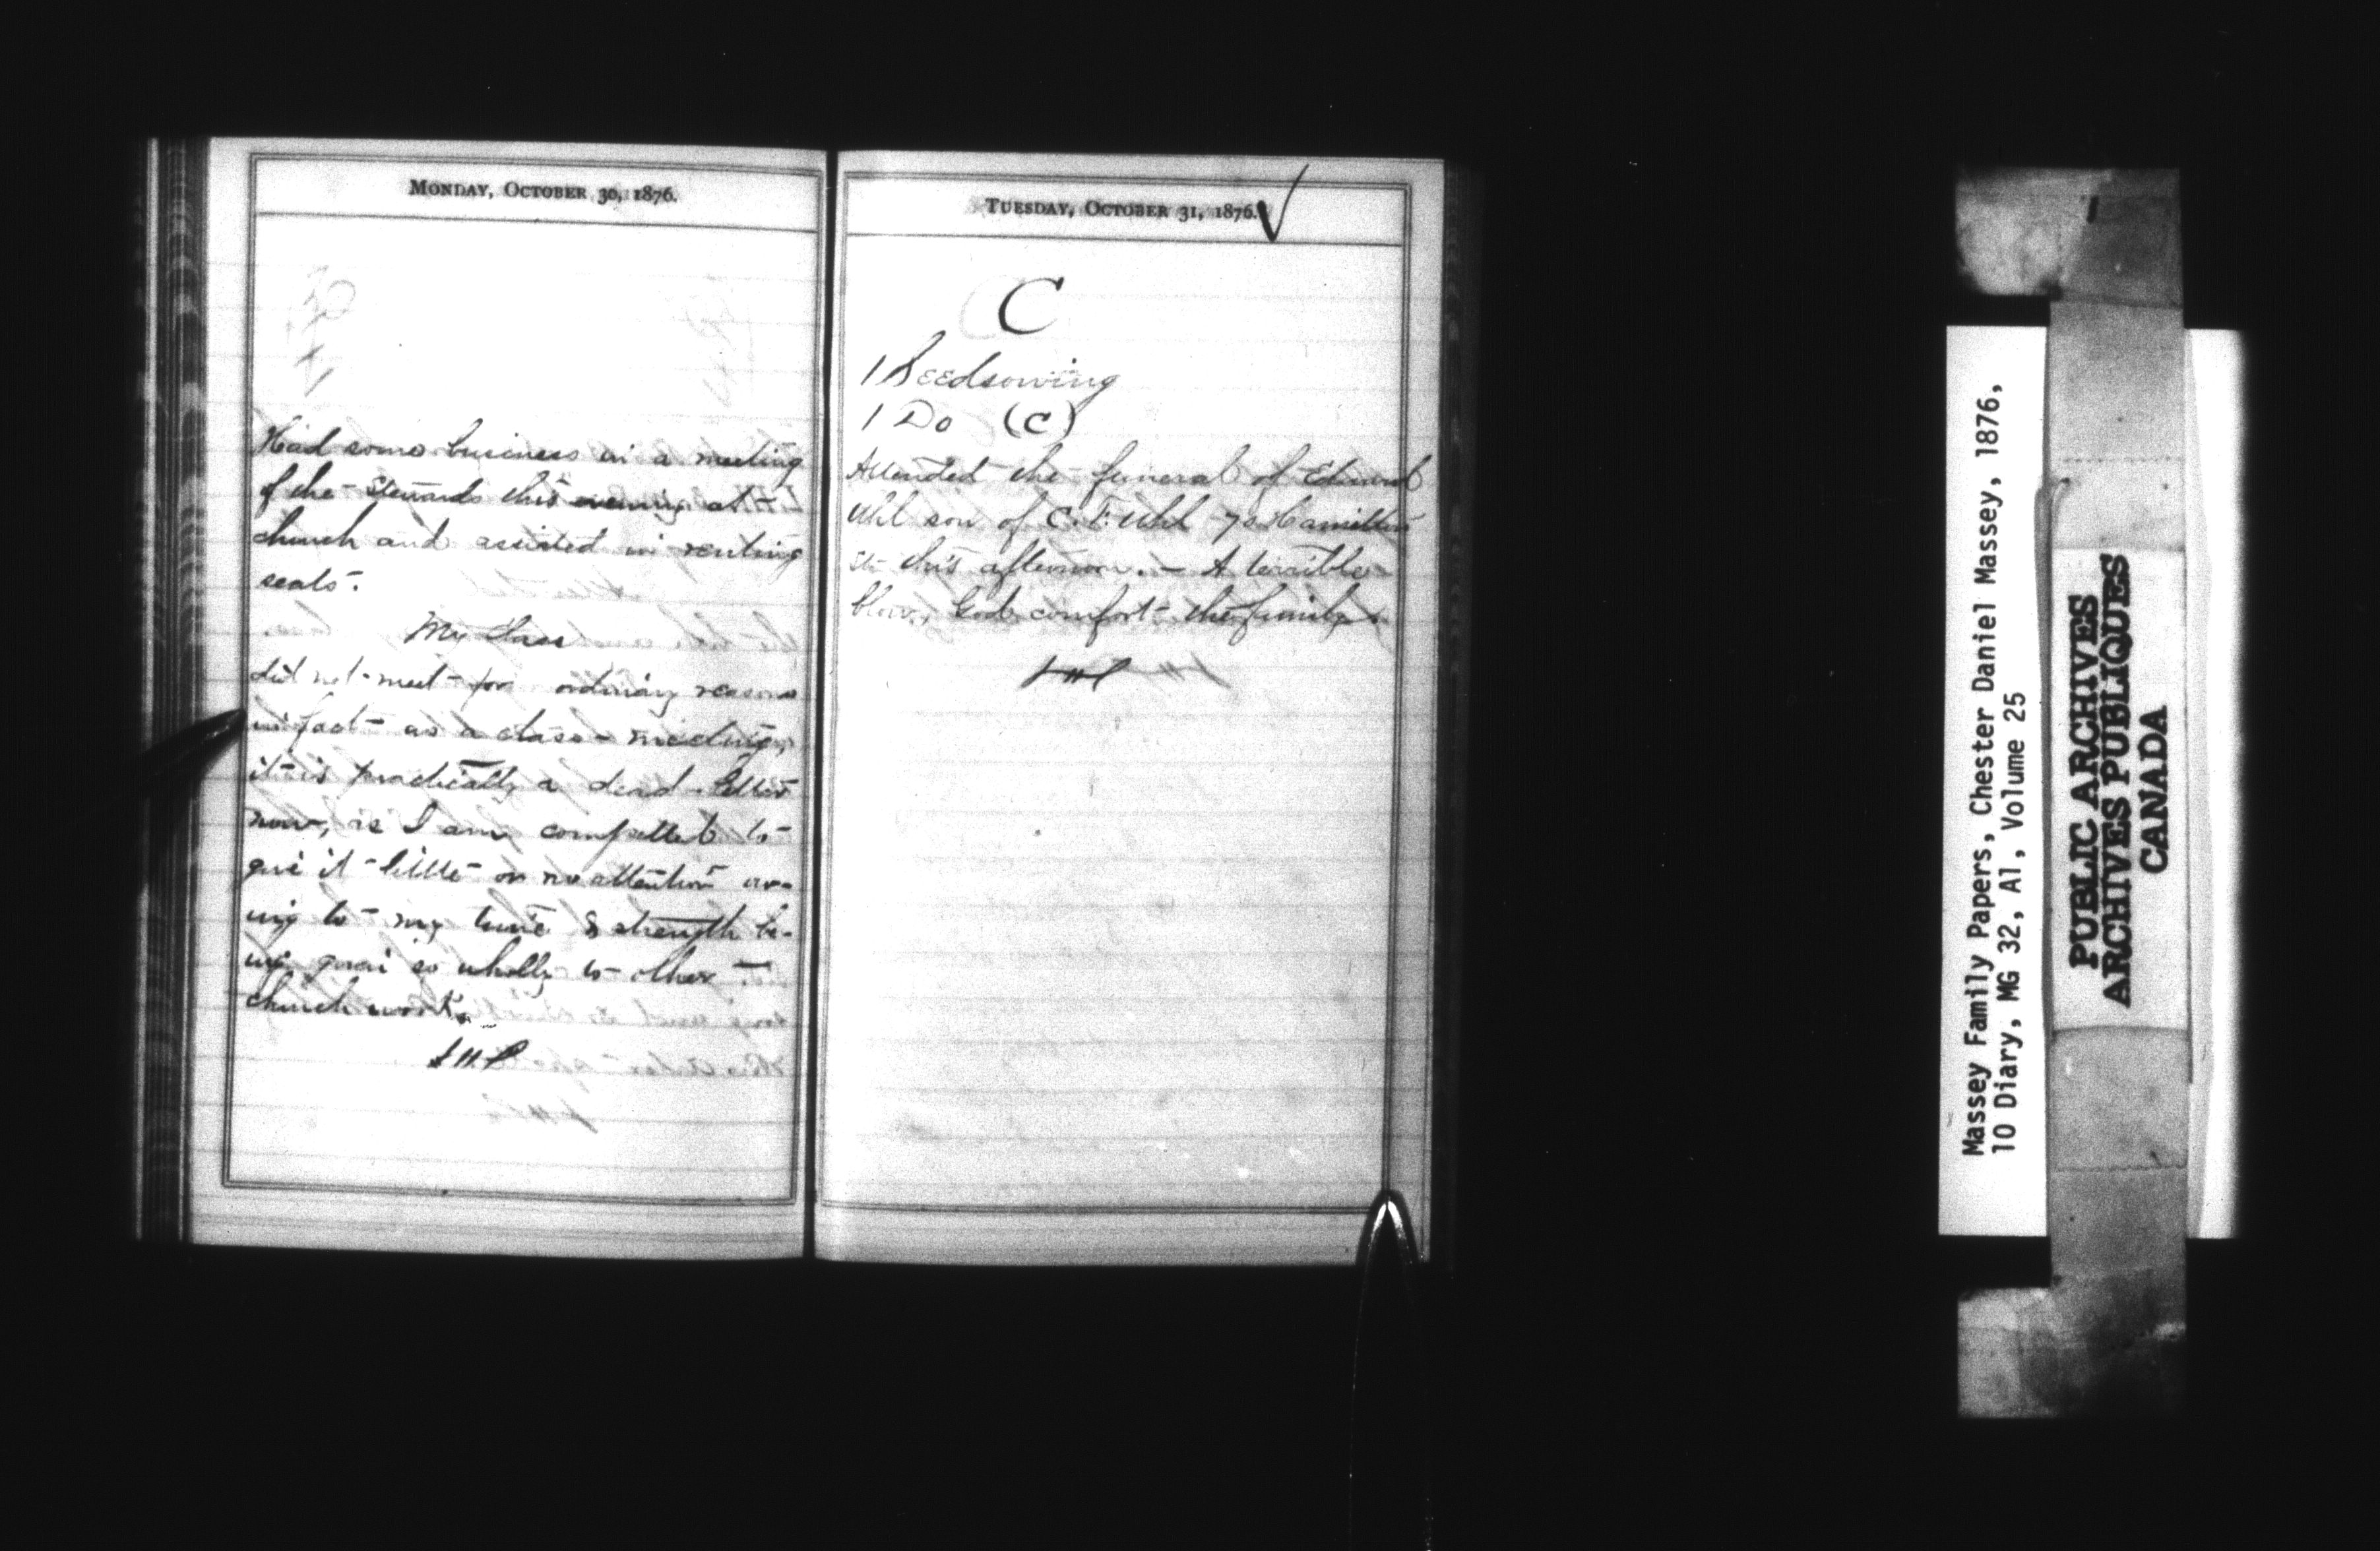 MONDAY, OCTOBER 30, 1876.
Had some business in a meeting
of the Stewards this evening at
church and assisted in renting
seats.
My Class
did not meet for ordinary reasons
in fact as a class-meeting,
it is practically a dead letter
now, as I am compelled to
give it little or no attention ow-
ing to my time & strength be-
ing given so wholly to other
church work.
TUESDAY, OCTOBER 31, 1876.
C
1 Seedsowing
1 Do (C)
Attended the funeral of Edward
Uhl son of C. F. Uhl 70 Hamilton
St this afternoon. – A terrible
blow, God comfort the family
Massey Family Papers, Chester Daniel Massey, 1876,
10 Diary, MG 32, A1, Volume 25
PUBLIC ARCHIVES
ARCHIVES PUBLIQUES
CANADA